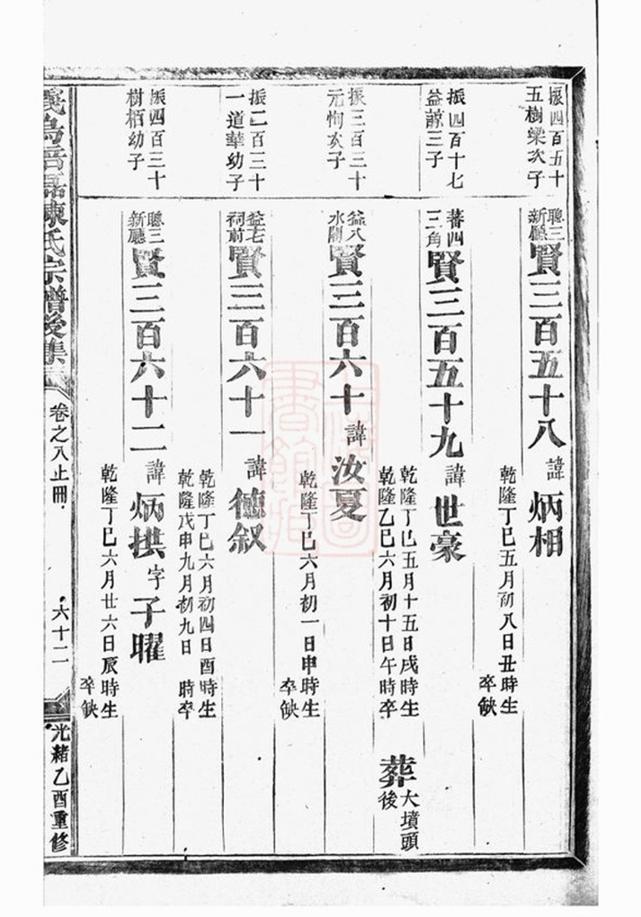 振四百五十
五樹樑次子
聰三
新廳
賢三百五十八 諱 炳相
乾隆丁巳五月初八日丑時生
卒缺
振四百十七
益諒三子
蕃四
三角
賢三百五十九 諱 世豪
乾隆丁巳五月十五日戌時生
乾隆乙巳六月初十日午時卒
葬 大墳頭
後
振三百三十
元恂次子
益八
水閣
賢三百六十 諱 汝夏
乾隆丁巳六月初一日申時生
卒缺
振二百三十
一道華幼子
益七
祠前
賢三百六十一 諱 德叙
乾隆丁巳六月初四日酉時生
乾隆戊申九月初九日 時卒
振四百三十
樹栢幼子
聰三
新廳
賢三百六十二 諱 炳拱 字 子曜
乾隆丁巳六月廿六日辰時生
卒缺
義烏 陳氏宗譜後集
卷之八止冊
六十二
光緒乙酉重修